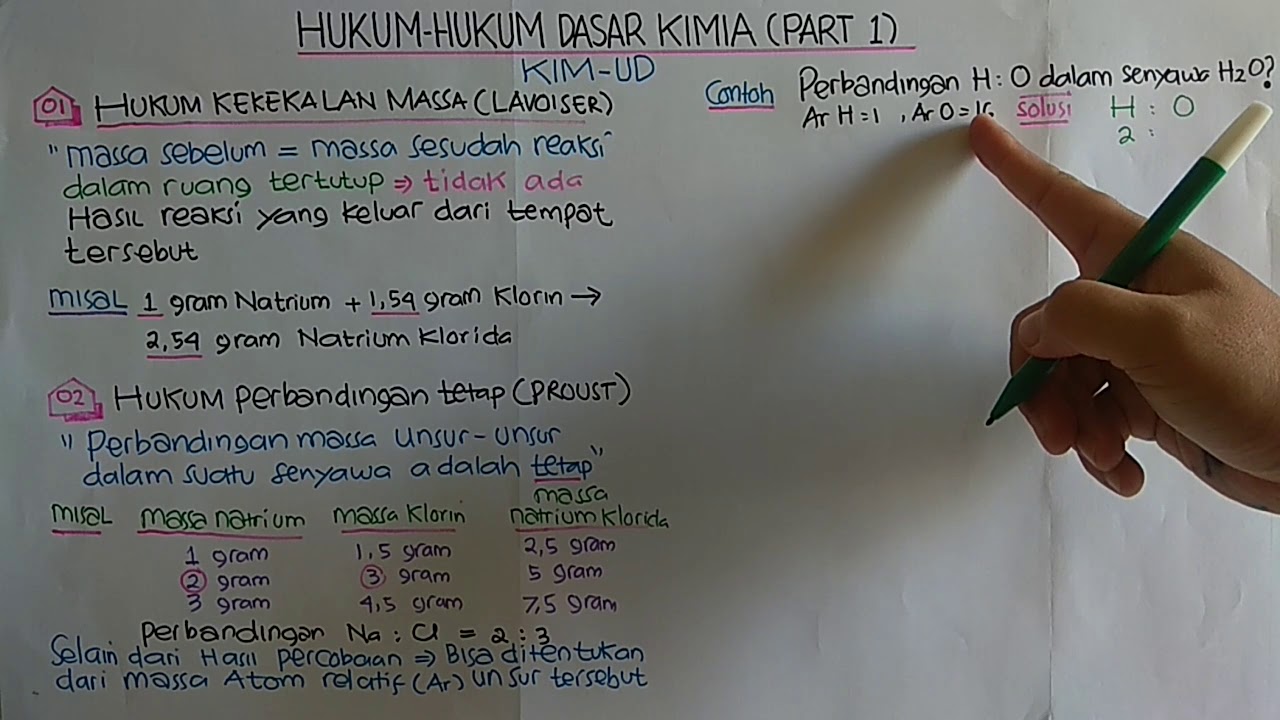 HUKUM-HUKUM DASAR KIMIA (PART 1)
KIM-UD
01 HUKUM KEKEKALAN MASSA (LAVOISER)
"massa sebelum = massa sesudah reaksi
dalam ruang tertutup ⇒ tidak ada
Hasil reaksi yang keluar dari tempat
tersebut
misal 1 gram Natrium + 1,54 gram Klorin →
2,54 gram Natrium Klorida
02 HUKUM perbandingan tetap (PROUST)
"Perbandingan massa unsur-unsur
dalam suatu senyawa adalah tetap"
misal massa natrium massa Klorin massa natrium Klorida
1 gram 1,5 gram 2,5 gram
2 gram 3 gram 5 gram
3 gram 4,5 gram 7,5 gram
Perbandingan Na : Cl = 2 : 3
Selain dari Hasil percobaan ⇒ Bisa ditentukan
dari massa Atom relatif (Ar) unsur tersebut
Contoh Perbandingan H : O dalam senyawa H2O?
Ar H = 1 , Ar O = 16 Solusi H : O
2 :